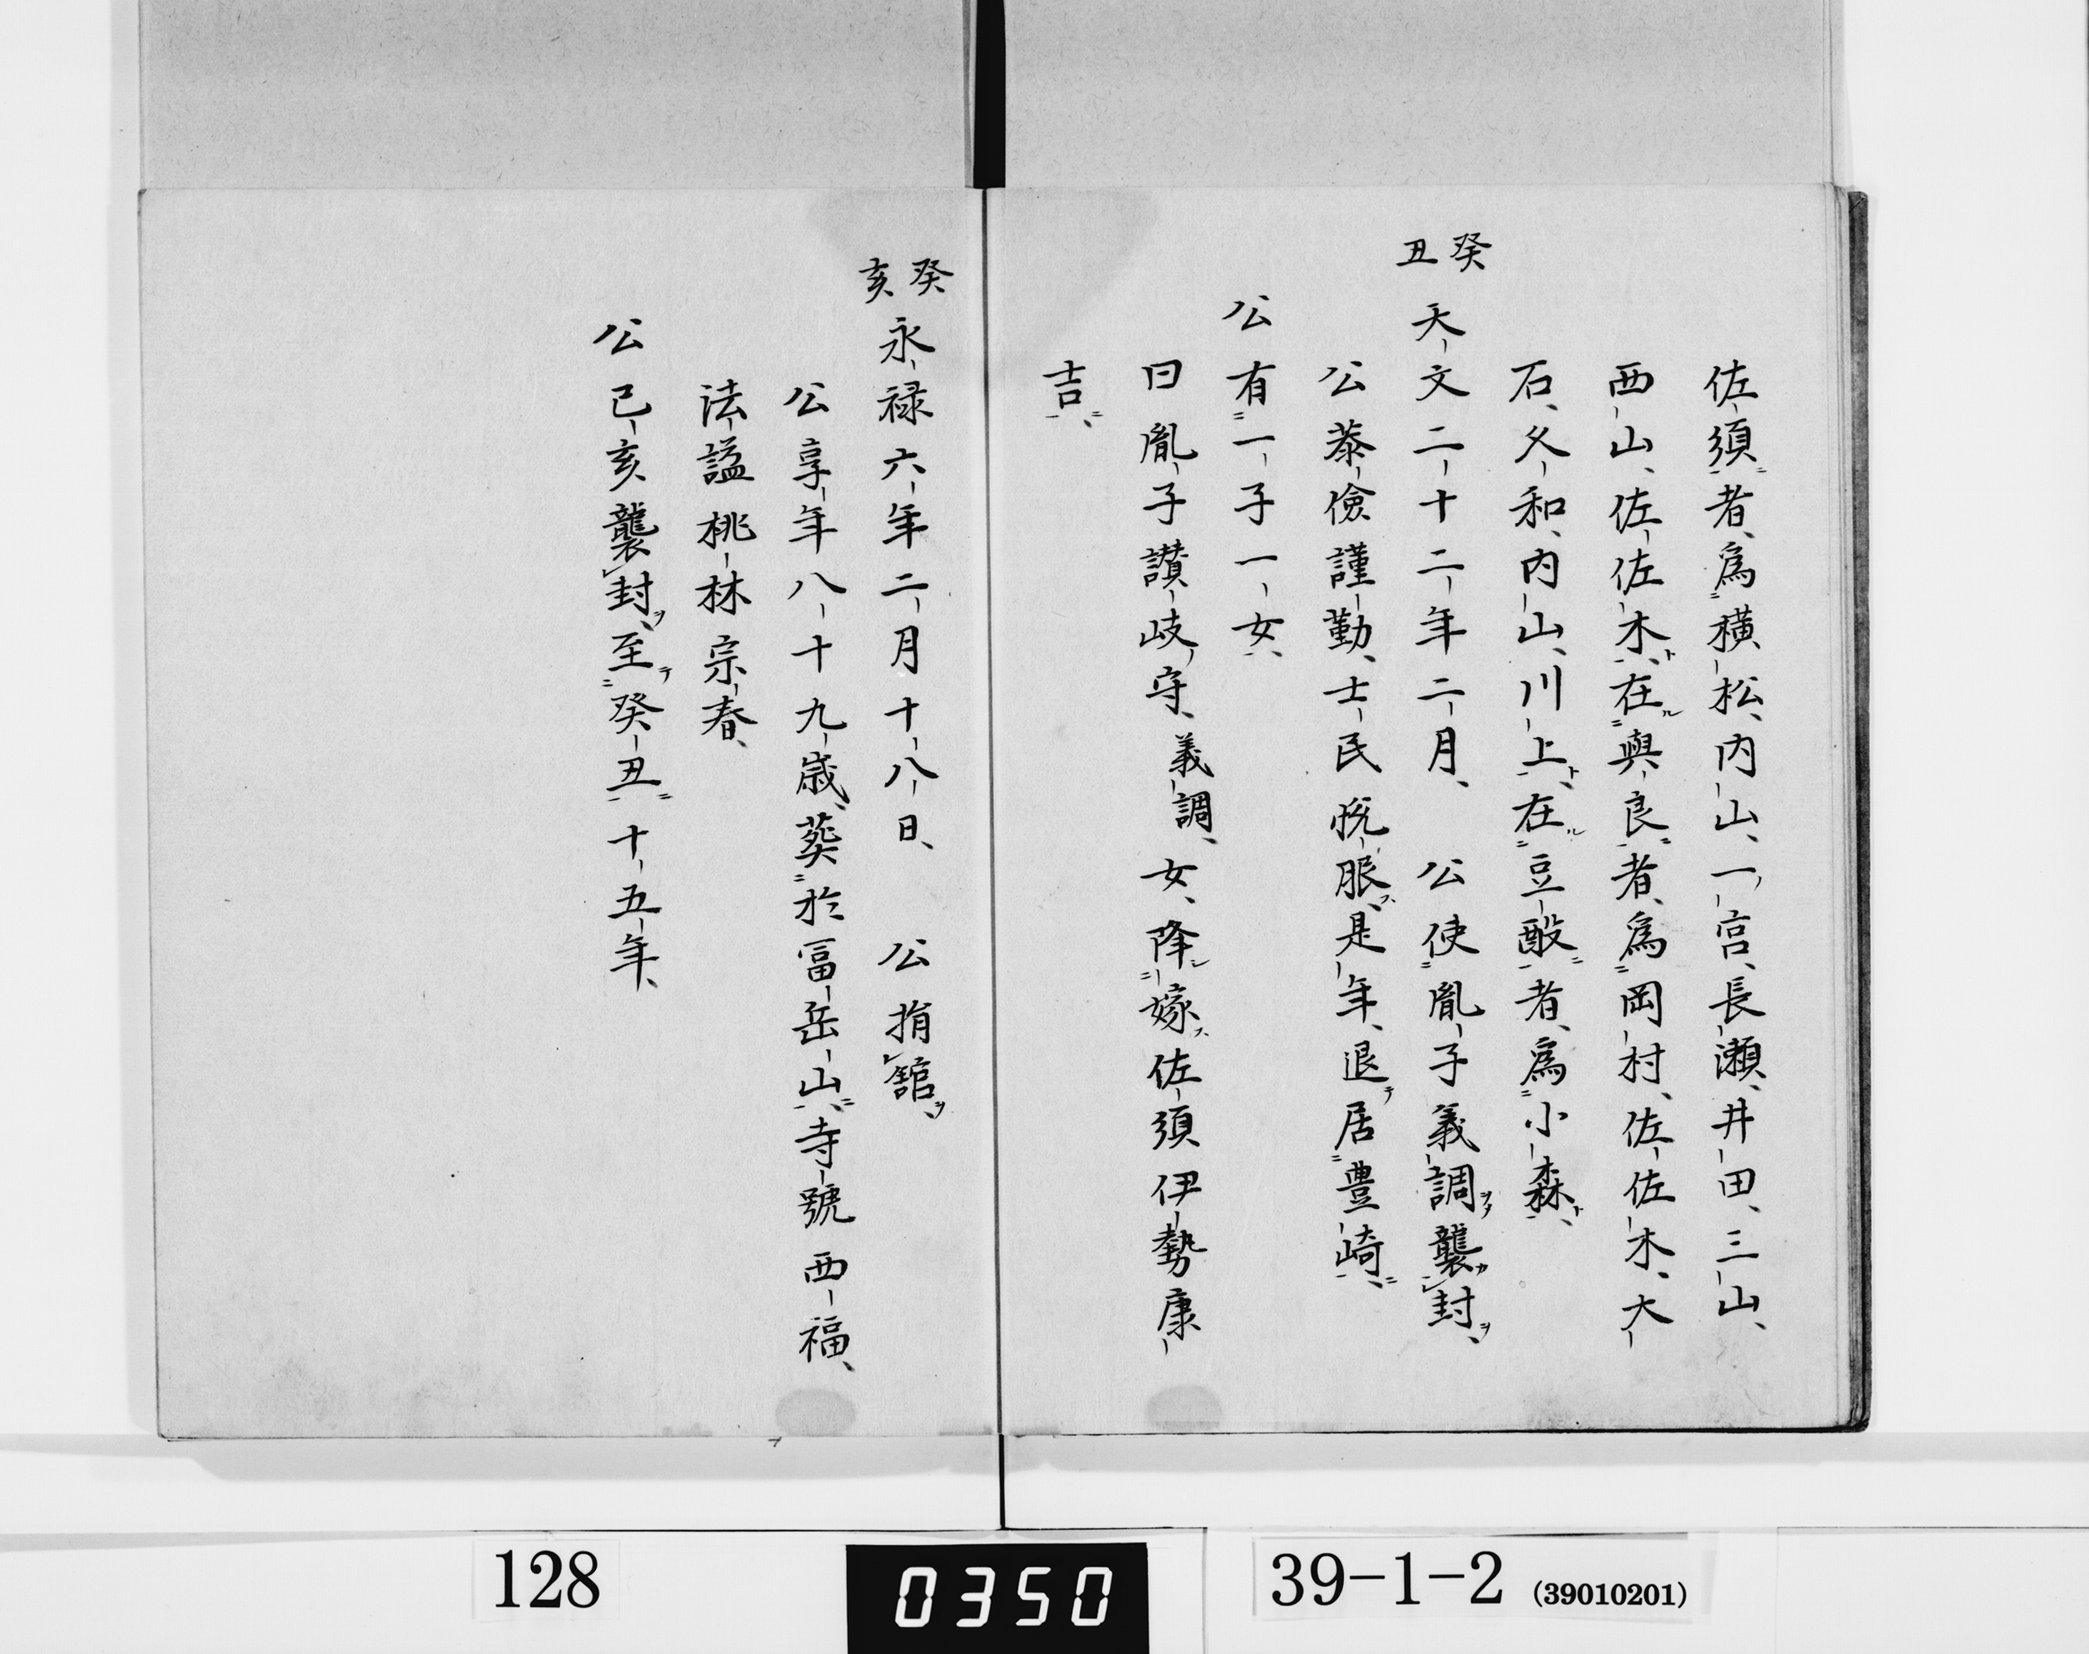 佐須者、爲橫松、内山、一宮、長瀬、井田、三山、
西山、佐佐木、在與良者、爲岡村、佐佐木、大
石、久和、内山、川上、在豆酘者、爲小森、
癸丑
天文二十二年二月、公使胤子義調襲封、
公恭儉謹勤、士民悦服、是年、退居豊崎、
公有一子一女、
曰胤子讃岐守、義調、女、降嫁佐須伊勢康
吉、
癸亥
永禄六年二月十八日、公捐舘、
公享年八十九歳、葬於冨岳山、寺號西福、
法諡桃林宗春、
公已亥襲封、至癸丑十五年、
128
0350
39-1-2 (39010201)